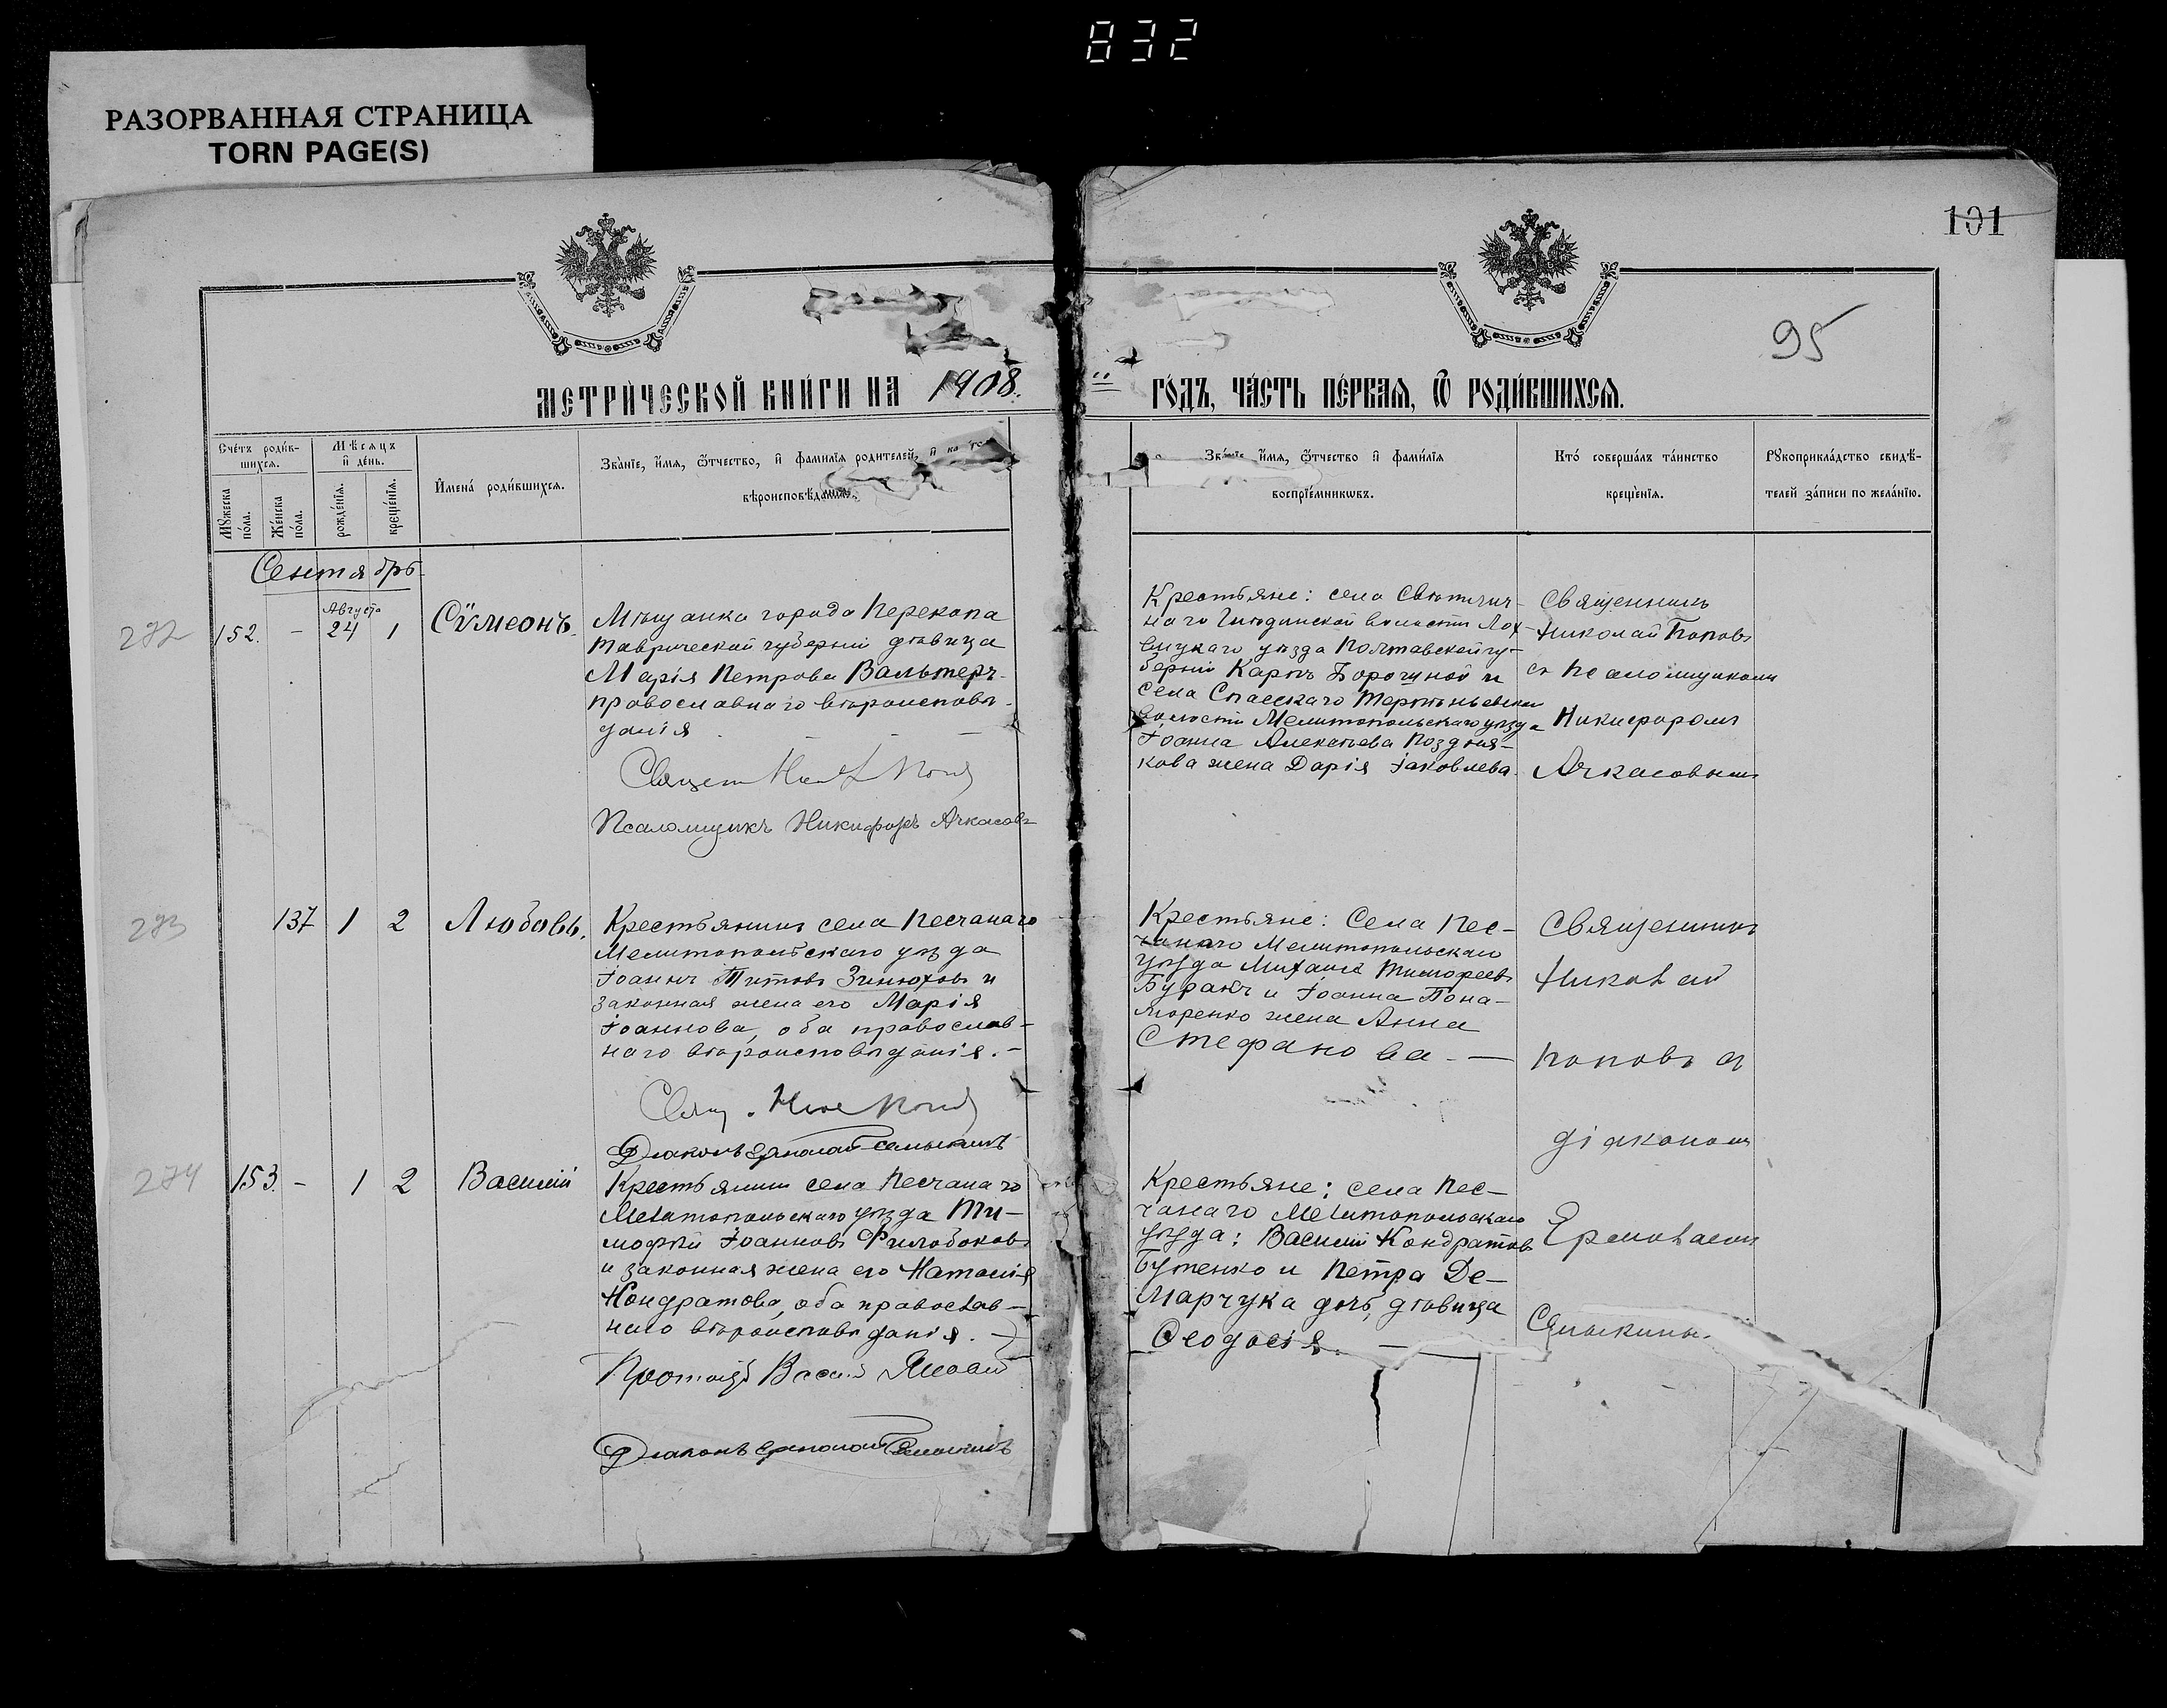 832
РАЗОРВАННАЯ СТРАНИЦА
TORN PAGE(S)
101
95
МЕТРИ́ЧЕСКОЙ КНИ́ГИ НА 1908
ГО́ДЪ, ЧА́СТЬ ПЕ́РВАѦ, Ѽ РОДИ́ВШИХСѦ.
Сче́тъ роди́в-
шихсѧ.
Мꙋжеска
по́ла.
Же́нска
по́ла.
Мѣ́сѧцъ
и҆ де́нь.
рожде́нїѧ.
креще́нїѧ.
И҆мена̀ роди́вшихсѧ.
Зва́нїе, и҆́мѧ, ѻ҆́тчество, и҆ фами́лїѧ родителей, и҆
вѣроисповѣданїѧ.
Зва́нїе и҆́мѧ, ѻ҆́тчество и҆ фами́лїѧ
воспрїе́мникѡвъ.
Кто̀ соверша́лъ та́инство
креще́нїѧ.
Рꙋкоприкла́дство свидѣ́-
телей за́писи по жела́нїю.
Сентябрь
272
152. -
Августа
24 1
Сѵмеонъ.
Мѣщанка города Перекопа
Таврической губерніи дѣвица
Марія Петрова Вальтеръ
православнаго вѣроисповѣ-
данія
Псаломщикъ Никифоръ Ачкасовъ
Крестьяне: села
волости Лох-
вицкаго уѣзда Полтавской гу-
берніи Карпъ и
села Спасскаго
волости Мелитопольскаго уѣзда
Іоанна Алексѣева Поздня-
кова жена Дарія Іаковлева.
Священникъ
Николай Поповъ
съ псаломщикомъ
Никифоромъ
Ачкасовымъ
273
137 1 2
Любовь.
Крестьянинъ села Песчанаго
Мелитопольскаго уѣзда
Іоаннъ Титовъ Зинюховъ и
законная жена его Марія
Іоаннова, оба православ-
наго вѣроисповѣданія. -
Діаконъ Ермолай Семыкинъ
Крестьяне: Села Пес-
чанаго Мелитопольскаго
уѣзда Михаилъ Тимофеевъ
Буракъ и Іоанна Пона-
моренко жена Анна
Стефанова. —
Священникъ
Николай
Поповъ съ
діакономъ
Ермолаемъ
Семыкинымъ.
274
153. - 1 2
Василій
Крестьянинъ села Песчанаго
Мелитопольскаго уѣзда Ти-
мофей Іоанновъ Филобоковъ
и законная жена его Наталія
Кондратова, оба православ-
наго вѣроисповѣданія. -
Діаконъ Ермолай Семыкинъ
Крестьяне: села Пес-
чанаго Мелитопольскаго
уѣзда: Василій Кондратовъ
Бутенко и Петра Де-
марчука дочь, дѣвица
Ѳеодосія. —